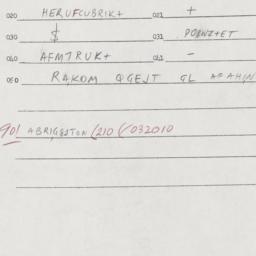 020 HERUFCUBRIK+ 021 +
030 $ 031 POWNZ+ET
040 AFMTRUK+ 041 -
050 RAKOM QGEJT GL AFAHIN
901 ABRIGESTON (210 (/032010